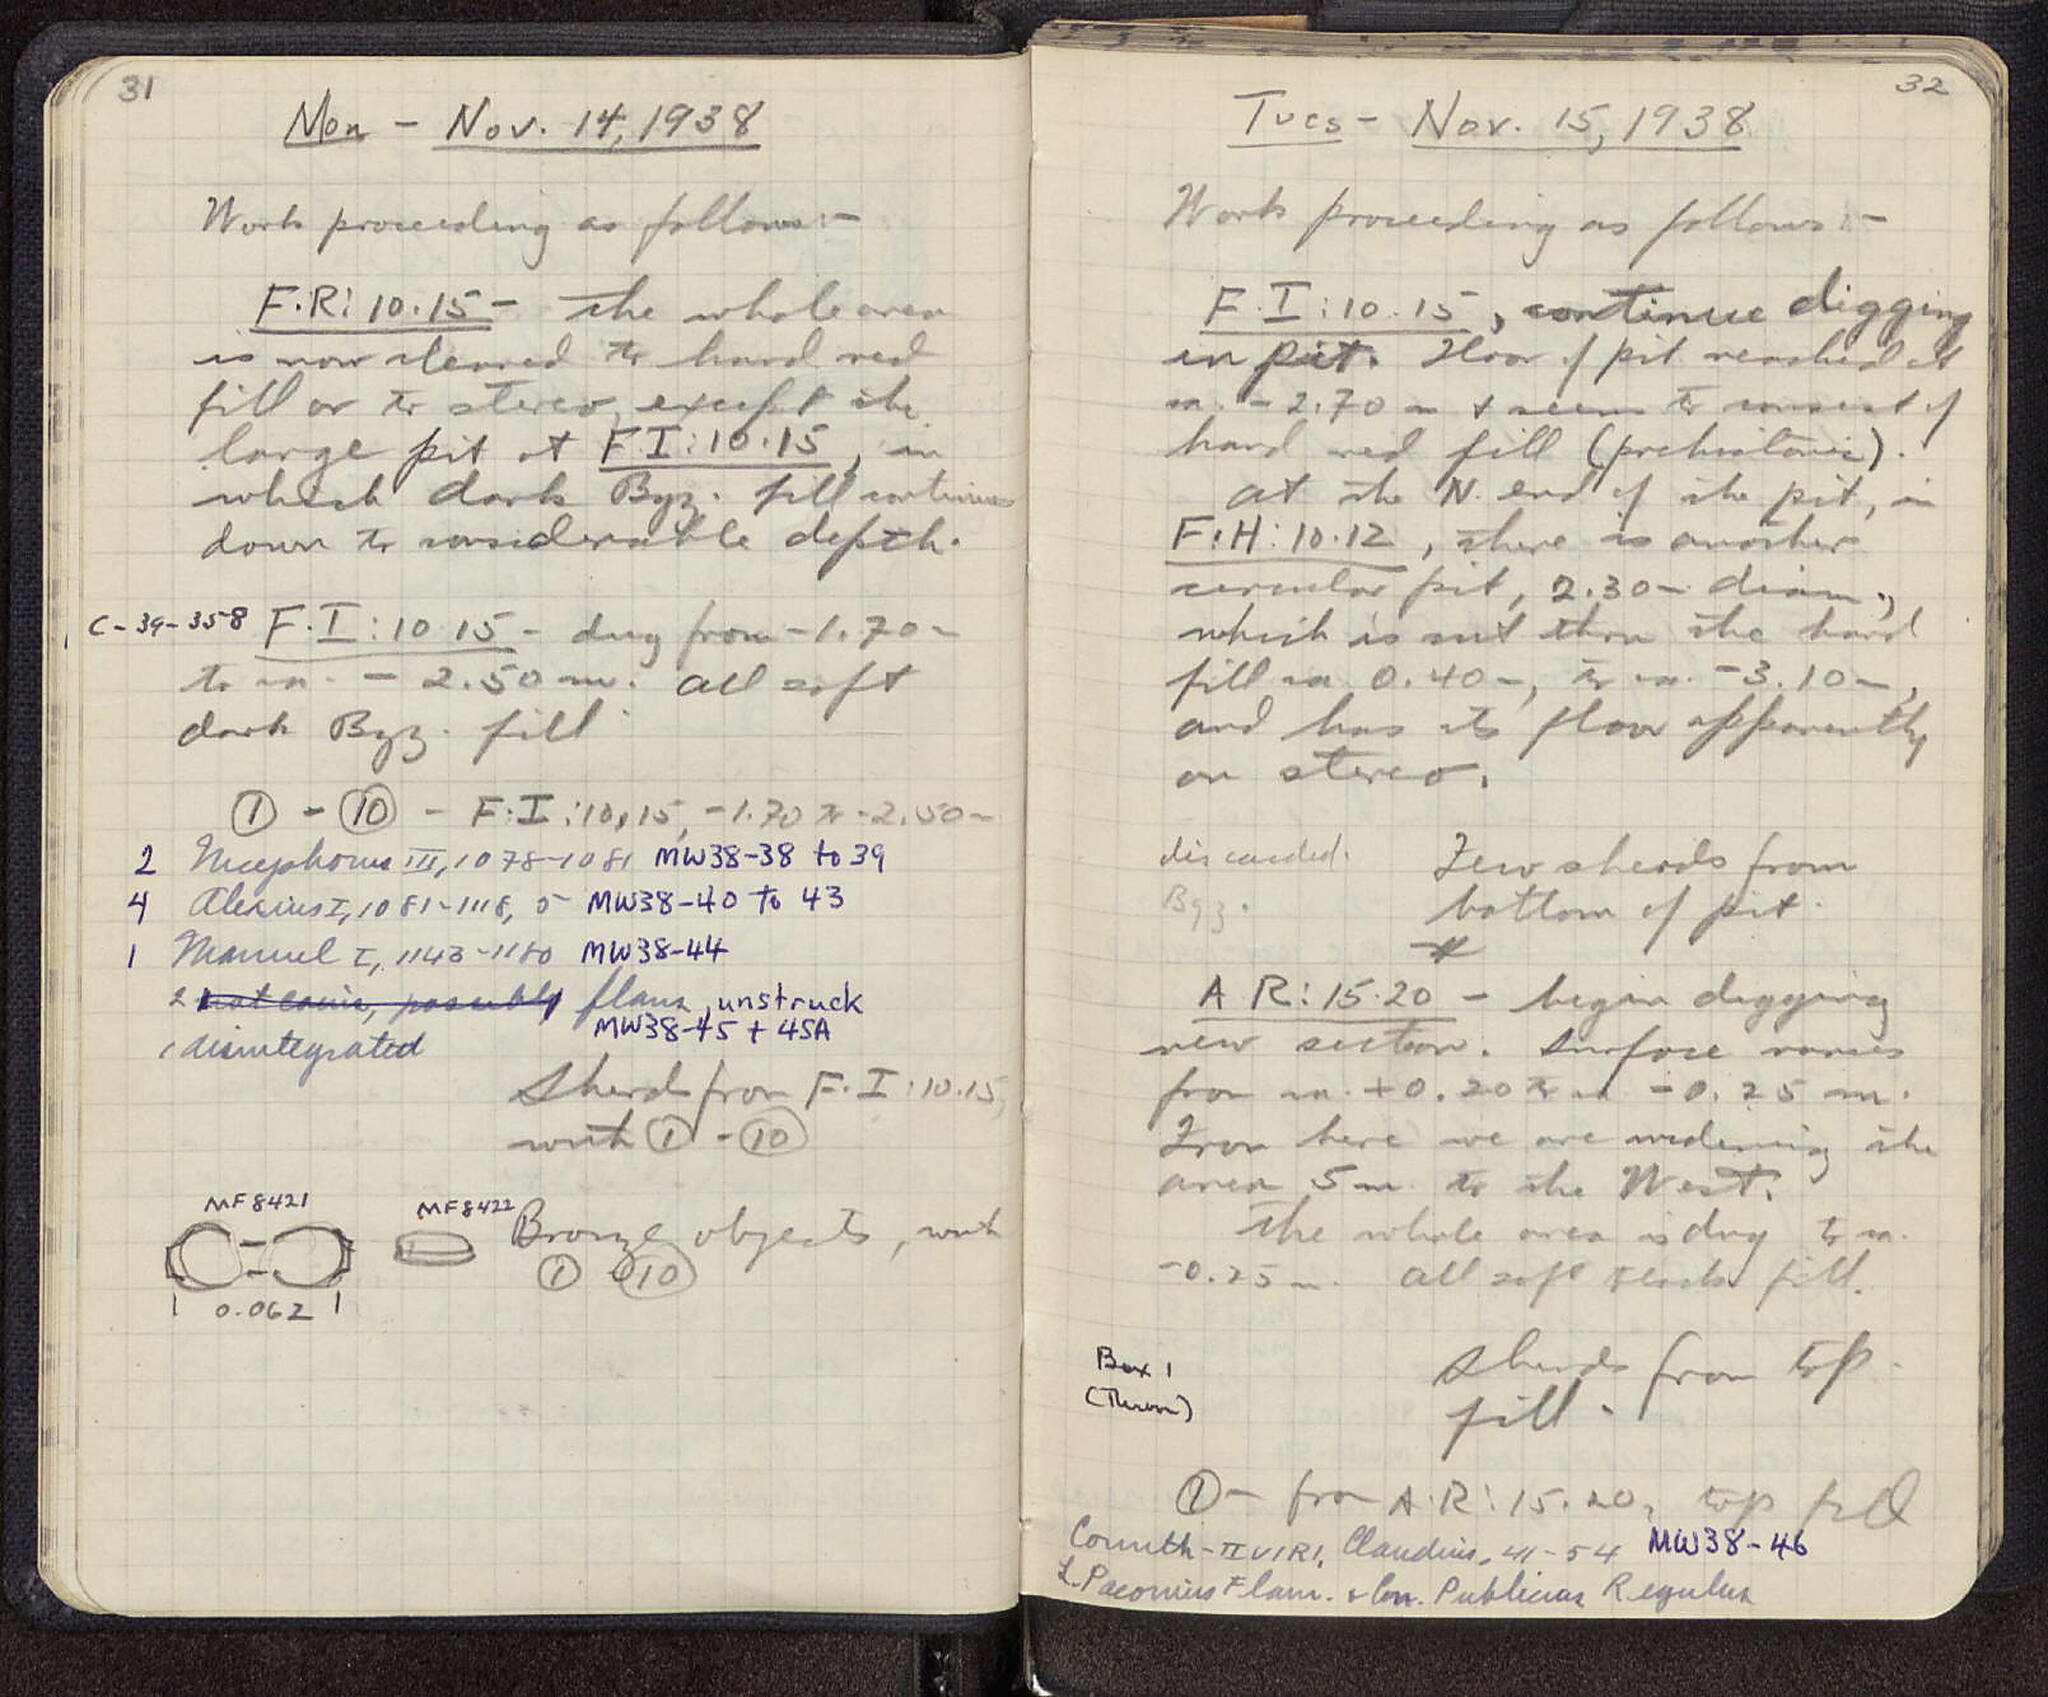 31
Mon - Nov. 14, 1938
Work proceeding as follows:-
F.R: 10.15 - The whole area
is now cleared to hard red
fill or to stereo, except the
large pit at F I: 10.15, in
which dark Byz. fill continues
down to considerable depth.
C-39-358 F.I: 10 15 - dug from -1.70 m
to ca. - 2.50 m. All soft
dark Byz. fill.
① - ⑩ - F.I: 10.15, -1.70 to -2.50 m
2 Nicephorus III, 1078-1081 MW38-38 to 39
4 Alexius I, 1081-1118, 5 MW38-40 to 43
1 Manuel I, 1143-1180 MW38-44
2 not coins, possibly flans, unstruck
MW38-45 + 45A
1 disintegrated
Sherds from F.I: 10.15,
with ① - ⑩
MF 8421
MF 8422
Bronze objects, with
① - ⑩
0.062
32
Tues - Nov. 15, 1938
Work proceeding as follows:-
F.I: 10.15, continue digging
in pit. Floor of pit reached at
ca. - 2.70 m & seems to consist of
hard red fill (prehistoric).
At the N. end of the pit, in
F.H: 10.12, there is another
circular pit, 2.30 m diam.,
which is cut thru the hard
fill ca 0.40 m, to ca. -3.10 m,
and has its floor apparently
on stereo.
discarded.
Byz.
Few sherds from
bottom of pit.
A R: 15.20 - begin digging
new section. Surface varies
from ca. +0.20 to ca -0.25 m.
From here we are widening the
area 5 m. to the West.
The whole area is dug to ca.
-0.25 m. All soft black fill.
Box 1
(Thrown)
Sherds from top
fill.
① - from A.R: 15.20, top fill
Corinth - II VIRI, Claudius, 41-54 MW38-46
L. Paconius Flam. & Cn. Publicius Regulus